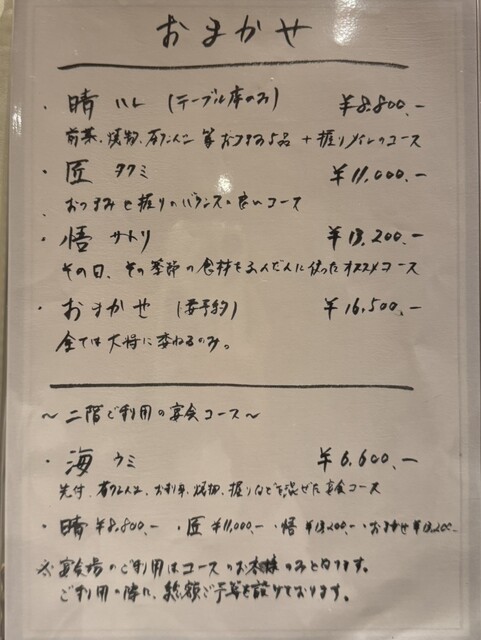 おまかせ
・晴 ハレ (テーブル席のみ) ¥8,800.-
前菜、焼物、茶わんムシ 等 おつまみ5品 + 握りメインのコース
・匠 タクミ ¥11,000.-
おつまみと握りのバランスの良いコース
・悟 サトリ ¥13,200.-
その日、その季節の食材をふんだんに使ったオススメコース
・おまかせ (要予約) ¥16,500.-
全ては大将に委ねるのみ。
〜二階ご利用の宴会コース〜
・海 ウミ ¥6,600.-
先付、茶わんムシ、お刺身、焼物、握りなどを混ぜた宴会コース
・晴 ¥8,800.- ・匠 ¥11,000.- ・悟 ¥13,200.- ・おまかせ
※宴会場のご利用はコースのお客様のみとなります。
ご利用の際に、総額ご予算を設けております。